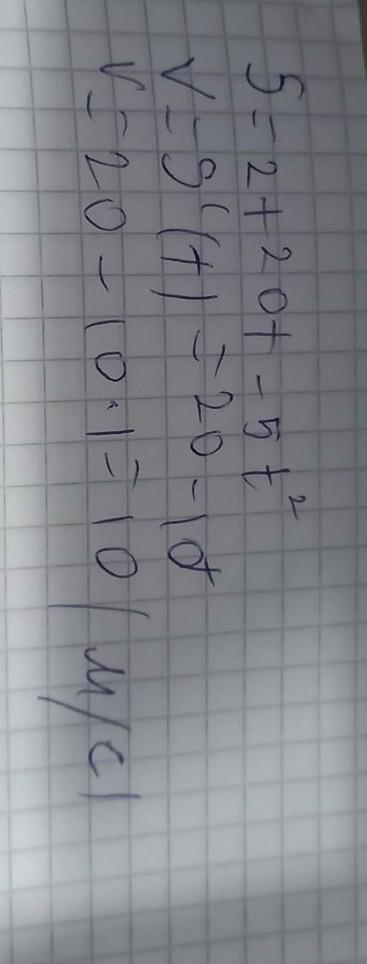 S = 2 + 20t - 5t²
v = S'(t) = 20 - 10t
v = 20 - 10 · 1 = 10 (м/с)